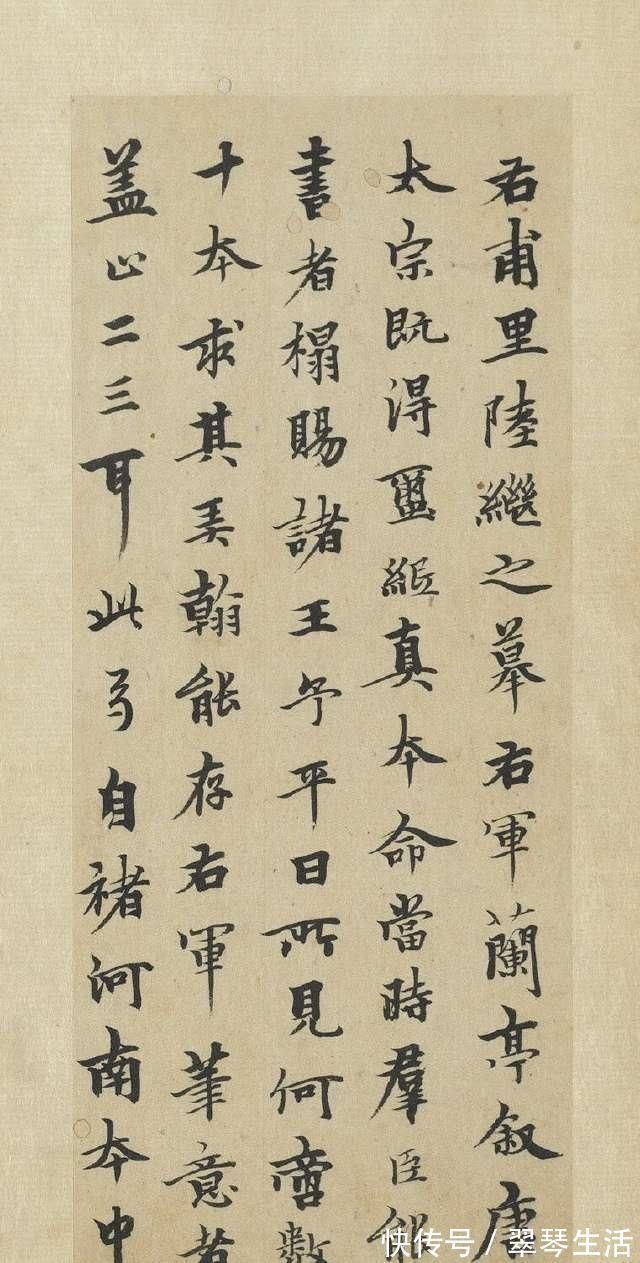 右甫里陸繼之摹右軍蘭亭敘唐
太宗既得璽紙真本命當時羣臣能
書者榻賜諸王予平日所見何啻數
十本求其美翰能存右軍筆意者
盖止二三耳此乃自褚河南本中
快传号／翠琴生活